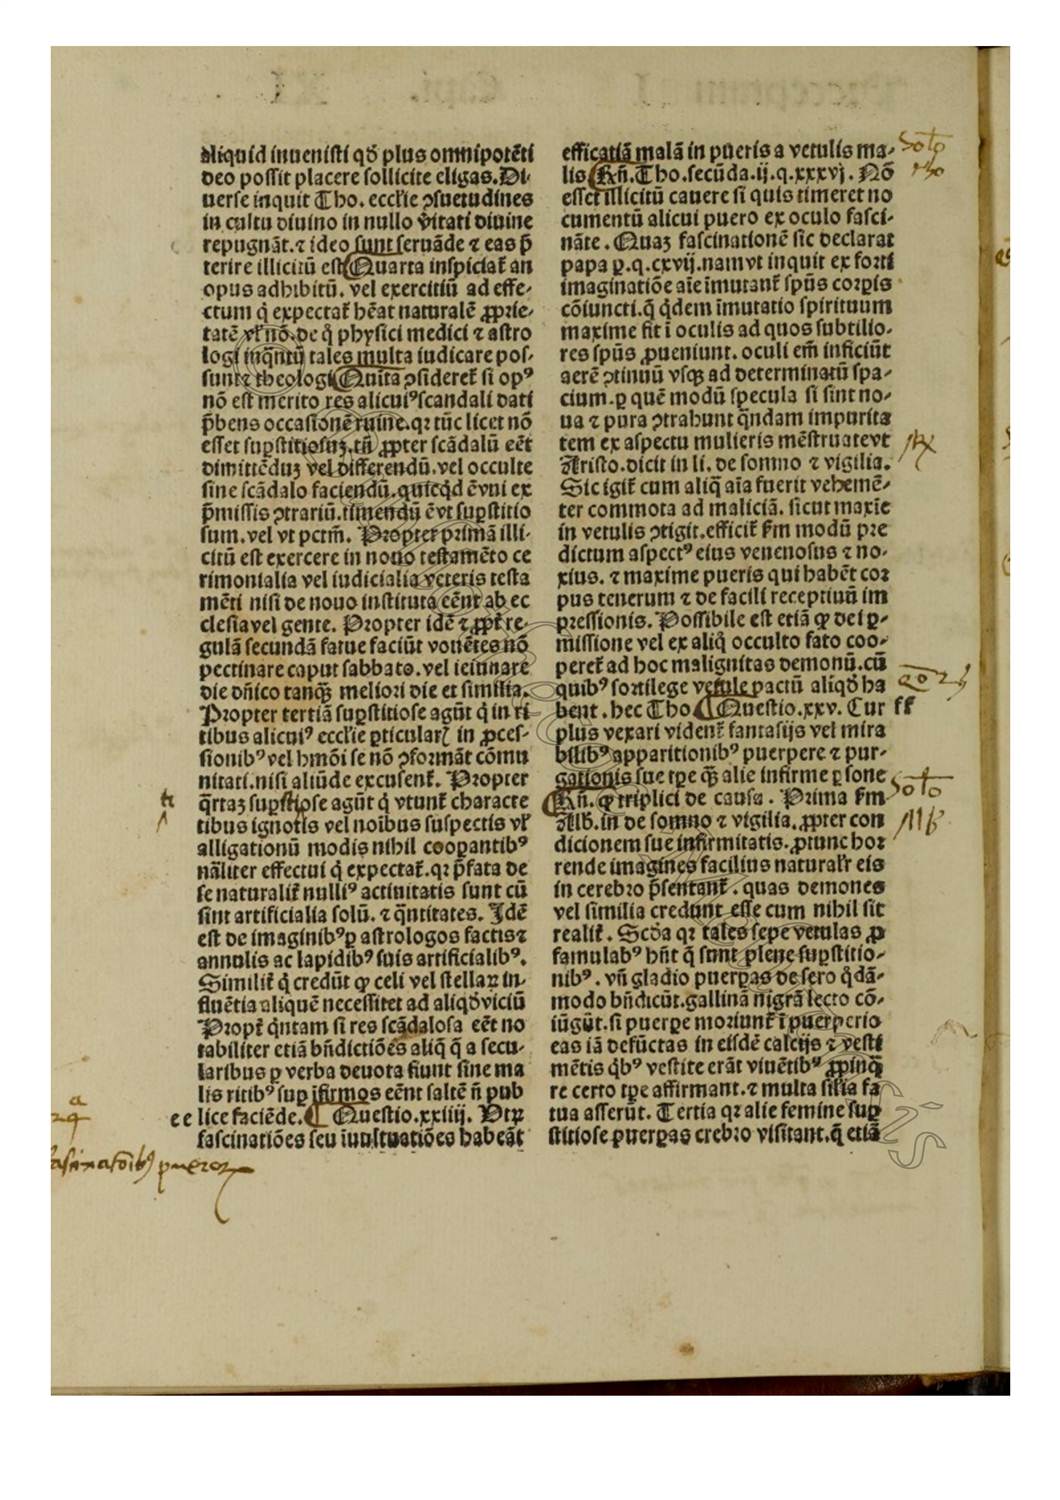 aliquid inuenisti qḋ plus omnipotēti
deo possit placere sollicite eligas. Di-
uerse inquit Tho. eccl'ie ꝯsuetudines
in cultu diuino in nullo v̄itati diuine
repugnāt. ⁊ ideo sunt seruāde ⁊ eas p̄
terire illicitū est Quarta inspiciat᷑ an
opus adhibitū. vel exercitiū ad effe-
ctum q̇ expectat᷑ hēat naturalē ꝓprie-
tatē vl' nō. de q̇ physici medici ⁊ astro
logi inq̄ntū tales multa iudicare pos-
sunt ⁊ theologi Quīta ꝯsideret᷑ si opꝰ
nō est merito res alicuiꝰ scandali dati
p̄bens occasionē ruine. qꝛ tūc licet nō
esset suꝑstitiosuꝫ. tn̄ ꝓpter scādalū eēt
dimittēduꝫ vel differendū. vel occulte
sine scādalo faciendū. quicqd̄ ēvni ex
p̄missis ꝯtrariū. timendū ē vt suꝑstitio
sum. vel vt pctm̄. Propter primā illi-
citū est exercere in nouo testamēto ce
rimonialia vel iudicialia veteris testa
mēti nisi de nouo instituta eēnt ab ec
clesia vel gente. Propter idē ⁊ ꝓpt᷑ re-
gulā secundā fatue faciūt vouētes nō
pectinare caput sabbato. vel ieiunare
die dn̄ico tanqꝫ meliori die et similia.
Propter tertiā suꝑstitiose agūt q̇ in ri
tibus alicuiꝰ eccl'ie ꝑticularꝭ in ꝓces-
sionibꝰ vel hmōi se nō ꝯformāt cōmu
nitati. nisi aliūde excusent᷑. Propter
q̄rtaꝫ suꝑstitiose agūt q̇ vtunt᷑ characte
tibus ignotis vel noībus suspectis vl'
alligationū modis nihil cooꝑantibꝰ
nāliter effectui q̇ expectat᷑. qꝛ p̄fata de
se naturalit᷑ nulliꝰ actiuitatis sunt cū
sint artificialia solū. ⁊ q̄ntitates. Idē
est de imaginibꝰ ꝑ astrologos factis ⁊
annulis ac lapidibꝰ suis artificialibꝰ.
Similit᷑ q̇ credūt ꝙ celi vel stellaꝝ in-
fluētia aliquē necessitet ad aliqḋ viciū
Propt᷑ q̇ntam si res scādalosa eēt no
tabiliter etiā bn̄dictiōes aliq̄ q̄ a secu-
laribus ꝑ verba deuota fiunt sine ma
lis ritibꝰ suꝑ īfirmos eēnt saltē n̄ pub
ee lice faciēde. ¶ Questio. xxiiij. Vtꝝ
fascinatiōes seu īuultuatiōes habeāt
efficatiā malā in pueris a vetulis ma-
lis Rn̄. Tho. secūda. ij. q. xxxvj. Nō
esset illicitū cauere si quis timeret no
cumentū alicui puero ex oculo fasci-
nāte. Quaꝫ fascinationē sic declarat
papa ꝑ. q. cxvij. nam vt inquit ex forti
imaginatiōe aīe īmutant᷑ spūs corꝑis
cōiuncti. q̄ q̇dem īmutatio spirituum
maxime fit ī oculis ad quos subtilio-
res spūs ꝓueniunt. oculi em̄ inficiūt
aerē ꝯtinuū vsqꝫ ad determinatū spa-
cium. ꝑ quē modū specula si sint no-
ua ⁊ pura ꝯtrahunt q̄ndam impurita
tem ex aspectu mulieris mēstruate vt
Aristo. dicit in li. de somno ⁊ vigilia.
Sic igit᷑ cum aliq̄ aīa fuerit vehemē-
ter commota ad maliciā. sicut maxīe
in vetulis ꝯtigit. efficit᷑ fm modū pre
dictum aspectꝰ eius venenosus ⁊ no-
xius. ⁊ maxime pueris qui habēt cor
pus tenerum ⁊ de facili receptiuū im
pressionis. Possibile est etiā ꝙ dei ꝑ-
missione vel ex aliq̇ occulto fato coo-
peret᷑ ad hoc malignitas demonū. cū
quibꝰ sortilege vetule pactū aliqḋ ha
bent. hec Tho ¶ Questio. xxv. Cur ff
plus vexari vident᷑ fantasijs vel mira
bilibꝰ apparitionibꝰ puerpere ⁊ pur-
gationis sue tꝑe qꝫ alie infirme ꝑsone
Rn̄. ꝙ triplici de causa. Prima fm
Alb. in de somno ⁊ vigilia. ꝓpter con
dicionem sue infirmitatis. ꝓtunc hor
rende imagines facilius naturalr̄ eis
in cerebro p̄sentant᷑. quas demones
vel similia credunt esse cum nihil sit
realit᷑. Scḋa qꝛ tales sepe vetulas ꝓ
famulabꝰ hn̄t q̄ sunt plene suꝑstitio-
nibꝰ. vn̄ gladio puerꝑas de sero q̇dā-
modo bn̄dicūt. gallinā nigrā lecto cō-
iūgūt. si puerꝑe moriunt᷑ ī puerperio
eas iā defūctas in eisdē calcijs ⁊ vesti
mētis qḃꝰ vestite erāt viuētibꝰ ꝓpinq̄
re certo tꝑe affirmant. ⁊ multa silia fa
tua asserūt. Tertia qꝛ alie femine suꝑ
stitiose puerꝑas crebro visitant. q̄ etiā
Soto
Soto